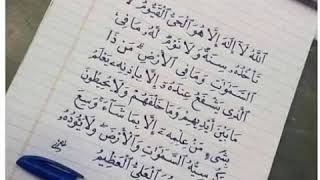 اَللّٰهُ لَاۤ اِلٰهَ اِلَّا هُوَ الْحَیُّ الْقَیُّوْمُ لَا
تَاْخُذُهٗ سِنَةٌ وَّلَا نَوْمٌ لَهٗ مَا فِی
السَّمٰوٰتِ وَمَا فِی الْاَرْضِ مَنْ ذَا
الَّذِیْ یَشْفَعُ عِنْدَهٗ اِلَّا بِاِذْنِهٖ یَعْلَمُ
مَا بَیْنَ اَیْدِیْهِمْ وَمَا خَلْفَهُمْ وَلَا یُحِیْطُوْنَ
بِشَیْءٍ مِّنْ عِلْمِهٖۤ اِلَّا بِمَا شَآءَ وَسِعَ
كُرْسِیُّهُ السَّمٰوٰتِ وَالْاَرْضَ وَلَا یَئُوْدُهٗ
الْعَلِیُّ الْعَظِیْمُ